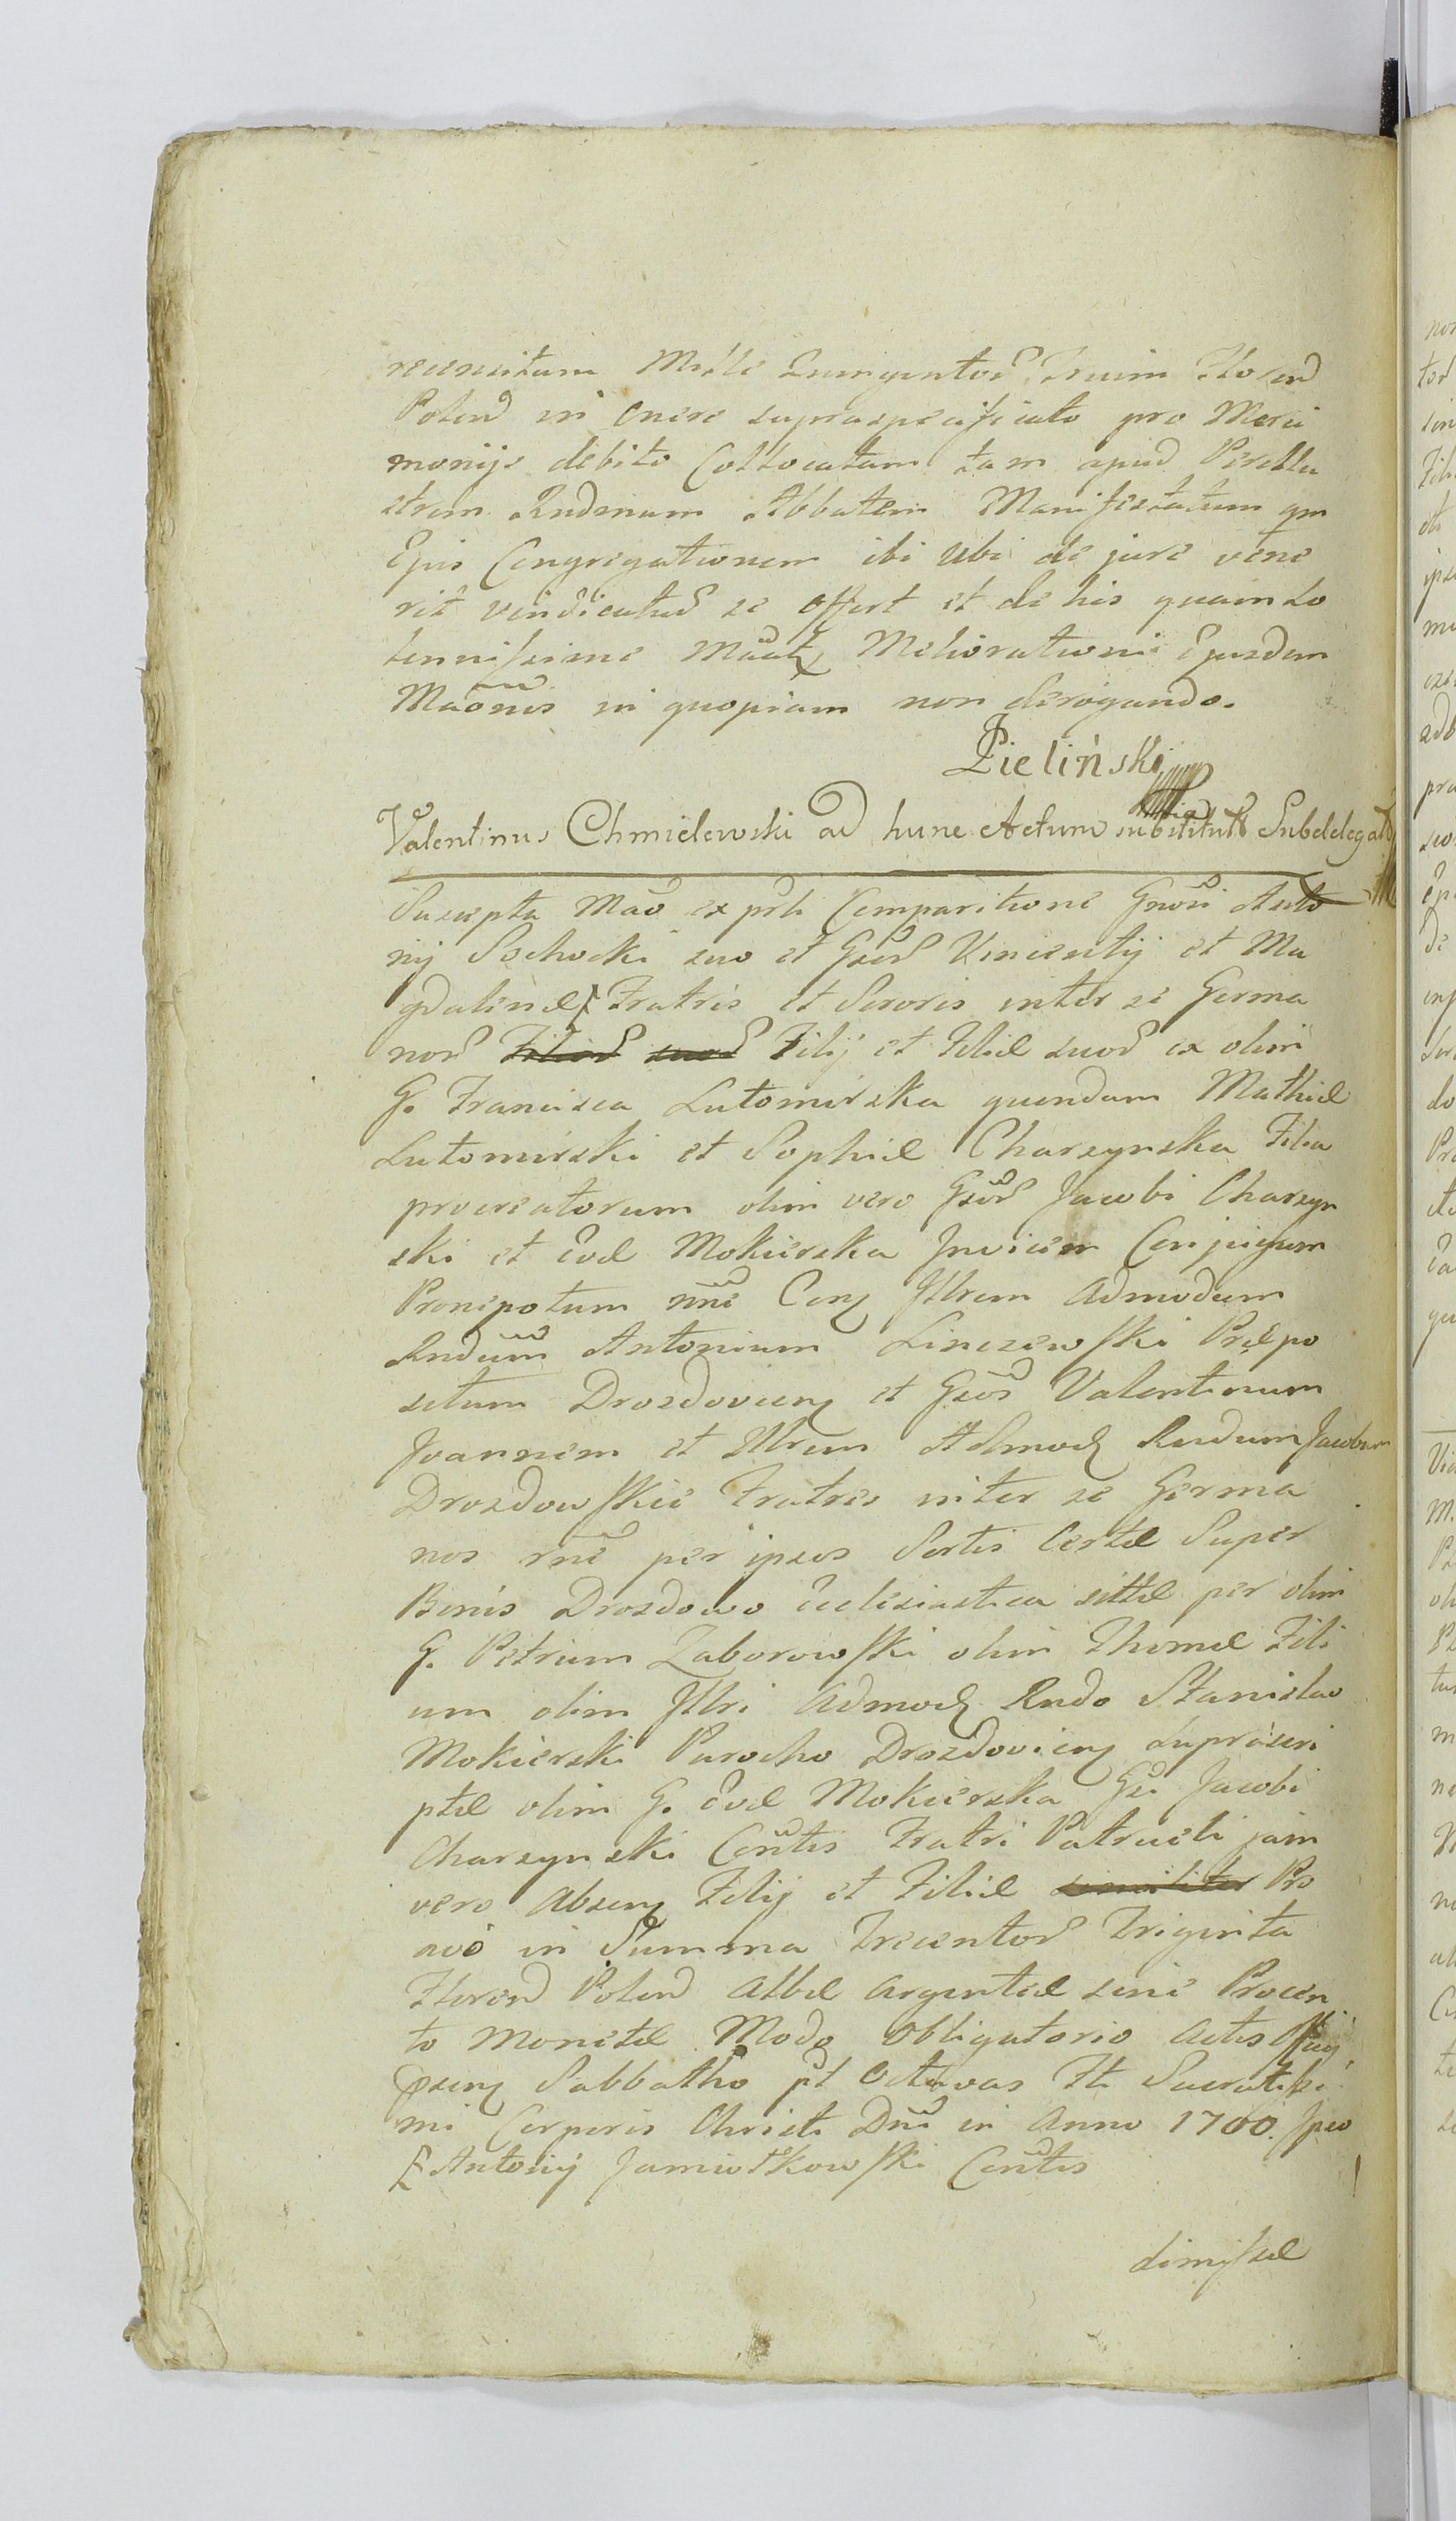 recensitam Mille Quingentor Trium Floren
Polon in onere supraspecificato pro Merci
monijs debito Collocatam tam apud Perillu
strem Rndmum Abbatem Manifestatum qm
Ejus Congregationem ibi ubi de jure vene
rit vindicatur se offert et de his quam so
lennissime Meliorationi Ejusdem
Maonis in quopiam non derogando.
Zieliński
Valentinus Chmielewski ad hunc Actum substituts Subdelegats
Suscepta Mao ex prti Comparitione Gnosi Anto
nij Sochocki suo et Gser Vincentij et Ma
gdalenæ Fratris et Sororis inter se Germa
nor Filior suor Filij et Filiæ suor ex olim
G. Francisca Lutomirska quondam Mathiæ
Lutomirski et Sophiæ Charzynska Filia
procreatorum olim vero Gsor Jacobi Charzyn
ski et Evæ Mokierska Invicem Conjugum
Pronepotum nne Conq Illrem Admodum
Rndum Antonium Linczewski Præpo
situm Drozdovienq et Gsos Valentinum
Joannem et Illrem Admodq Rndum Jacobum
Drozdowskie Fratres inter se Germa
nos rne per ipsos Sortis Certæ Super
Bonis Drozdowo Ecclesiastica sittæ per olim
G. Petrum Zaborowski olim Thomæ Fili
um olim Illri Admodq Rndo Stanislao
Mokierski Parocho Drozdovienq Suprascri
ptæ olim G. Evæ Mokierska Gsi Jacobi
Charzynski Contis Fratri Patrueli jam
vero absenq Filij et Filiæ similiter Pro
avo in Summa Trecentor Triginta
Floren Polon albæ argenteæ sine Procen
to Monetæ Modo Obligatorio Actis Offcij
Sabbatho pt Octavas Fti Sacratissi
mi Corporis Christi Dni in Anno 1700. Ipso
Antonij Jamiołkowski Contis
dimissæ